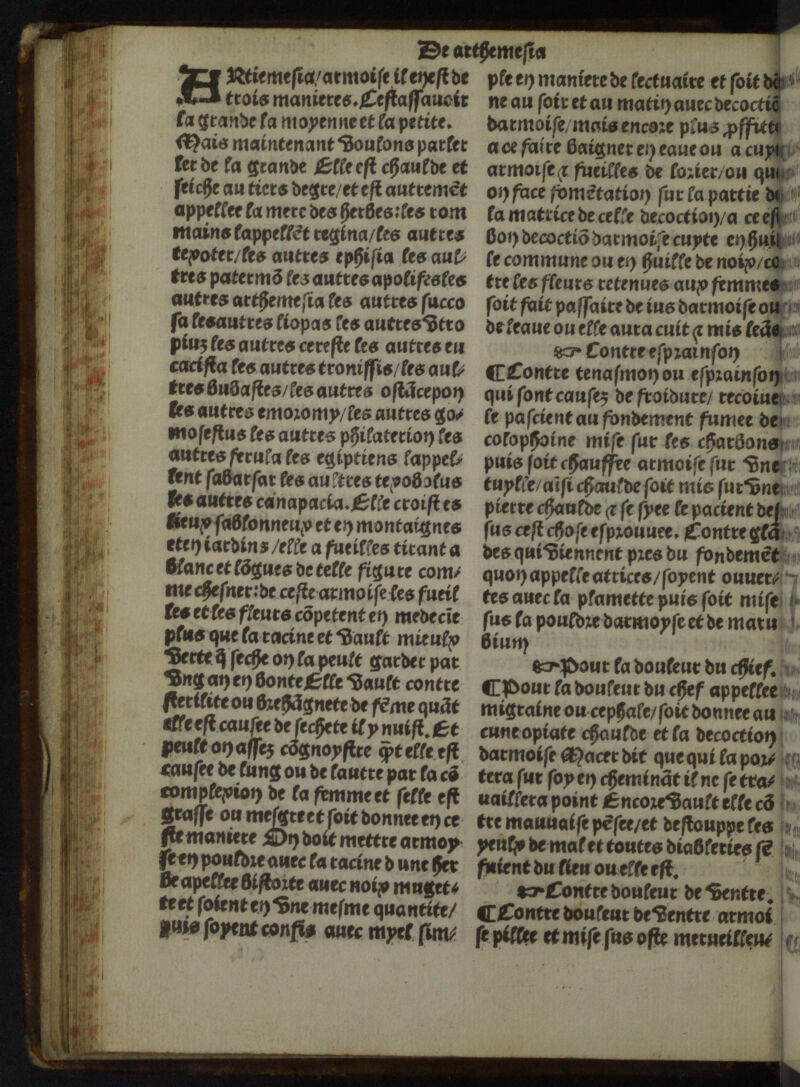 De arthemesia
ARtiemesia/armoise il en est de
trois manieres. Cestassauoir
la grande la moyenne et la petite.
Mais maintenant voulons parler
ler de la grande Elle est chaulde et
seiche au tiers degre/et est autremẽt
appellee la mere des herbes: les rom
mains lappellẽt regina/les autres
texoter/les autres ephisia les aul/
tres patermõ les autres apolifesles
autres arthemesia les autres succo
sa les autres liopas les autres vtro
pius les autres cereste les autres eu
cacista les autres tronissis/les aul/
tres bubastes/les autres ostãcepon
les autres emoromp/les autres go/
mosestus les autres philaterion les
autres ferula les egiptiens lappel/
lent sabarsar les aultres texobolus
les autres canapacia. Elle croist es
lieux sablonneux et en montaignes
et en iardins/elle a fueilles tirant a
blanc et lõgues de telle figure com/
me chesner: de ceste armoise les fueil
les et les fleurs cõpetent en medecïe
plus que la racine et vault mieulx
verte q̃ seche on la peult garder par
vng an en bonte Elle vault contre
sterilite ou brehãgnete de fẽme quãt
elle est causee de sechete il y nuist. Et
peult on asses cõgnoystre q̃t elle est
causee de lung ou de lautre par la cõ
complexion de la femme et selle est
grasse ou mesgre et soit donnee en ce
ste maniere On doit mettre armoy
se en pouldre auec la racine d une her
be apellee bistorte auec noix muget/
te et soient en vne mesme quantite/
puis soyent confis auec myel sim/
ple en maniere de lectuaire et soit dõ
ne au soir et au matin auec decoctiõ
darmoise/mais encore plus
a ce faire baigner en eaue ou a cuyt
armoise & fueilles de lorier/ou
on face fomẽtation sur la partie de
la matrice de celle decoction/a ce est
bon decoctiõ darmoise cuyte en huil
le commune ou en huille de noix/cõ
tre les fleurs retenues aux femmes
soit fait passaire de ius darmoise ou
de leaue ou elle aura cuit & mis ledãs
Contre esprainson
Contre tenasmon ou esprainson
qui sont causes de froidure/ recoiue
le pascient au fondement fumee de
colophoine mise sur les charbons
puis soit chauffee armoise sur vne
tuylle/aïsi chaulde soit mis sur vne
pierre chaulde & se syee le pacient des
sus cest chose esprouuee. Contre glã
des qui viennent pres du fondemẽt
quon appelle atrices/soyent ouuer/
tes auec la plamette puis soit mise
sus la pouldre darmoyse et de maru
bium
Pour la douleur du chief.
Pour la douleur du chef appellee
migraine ou cephale/soit donnee au
cune opiate chaulde et la decoction
darmoise Macer dit que qui la por/
tera sur soy en cheminãt il ne se tra/
uaillera point Encore vault elle cõ
tre mauuaise pẽsee/et destouppe les
yeulx de mal et toutes diableries sẽ
fuient du lieu ou elle est.
Contre douleur de ventre.
Contre douleur de ventre armoi
se pillee et mise sus oste merueilleu/